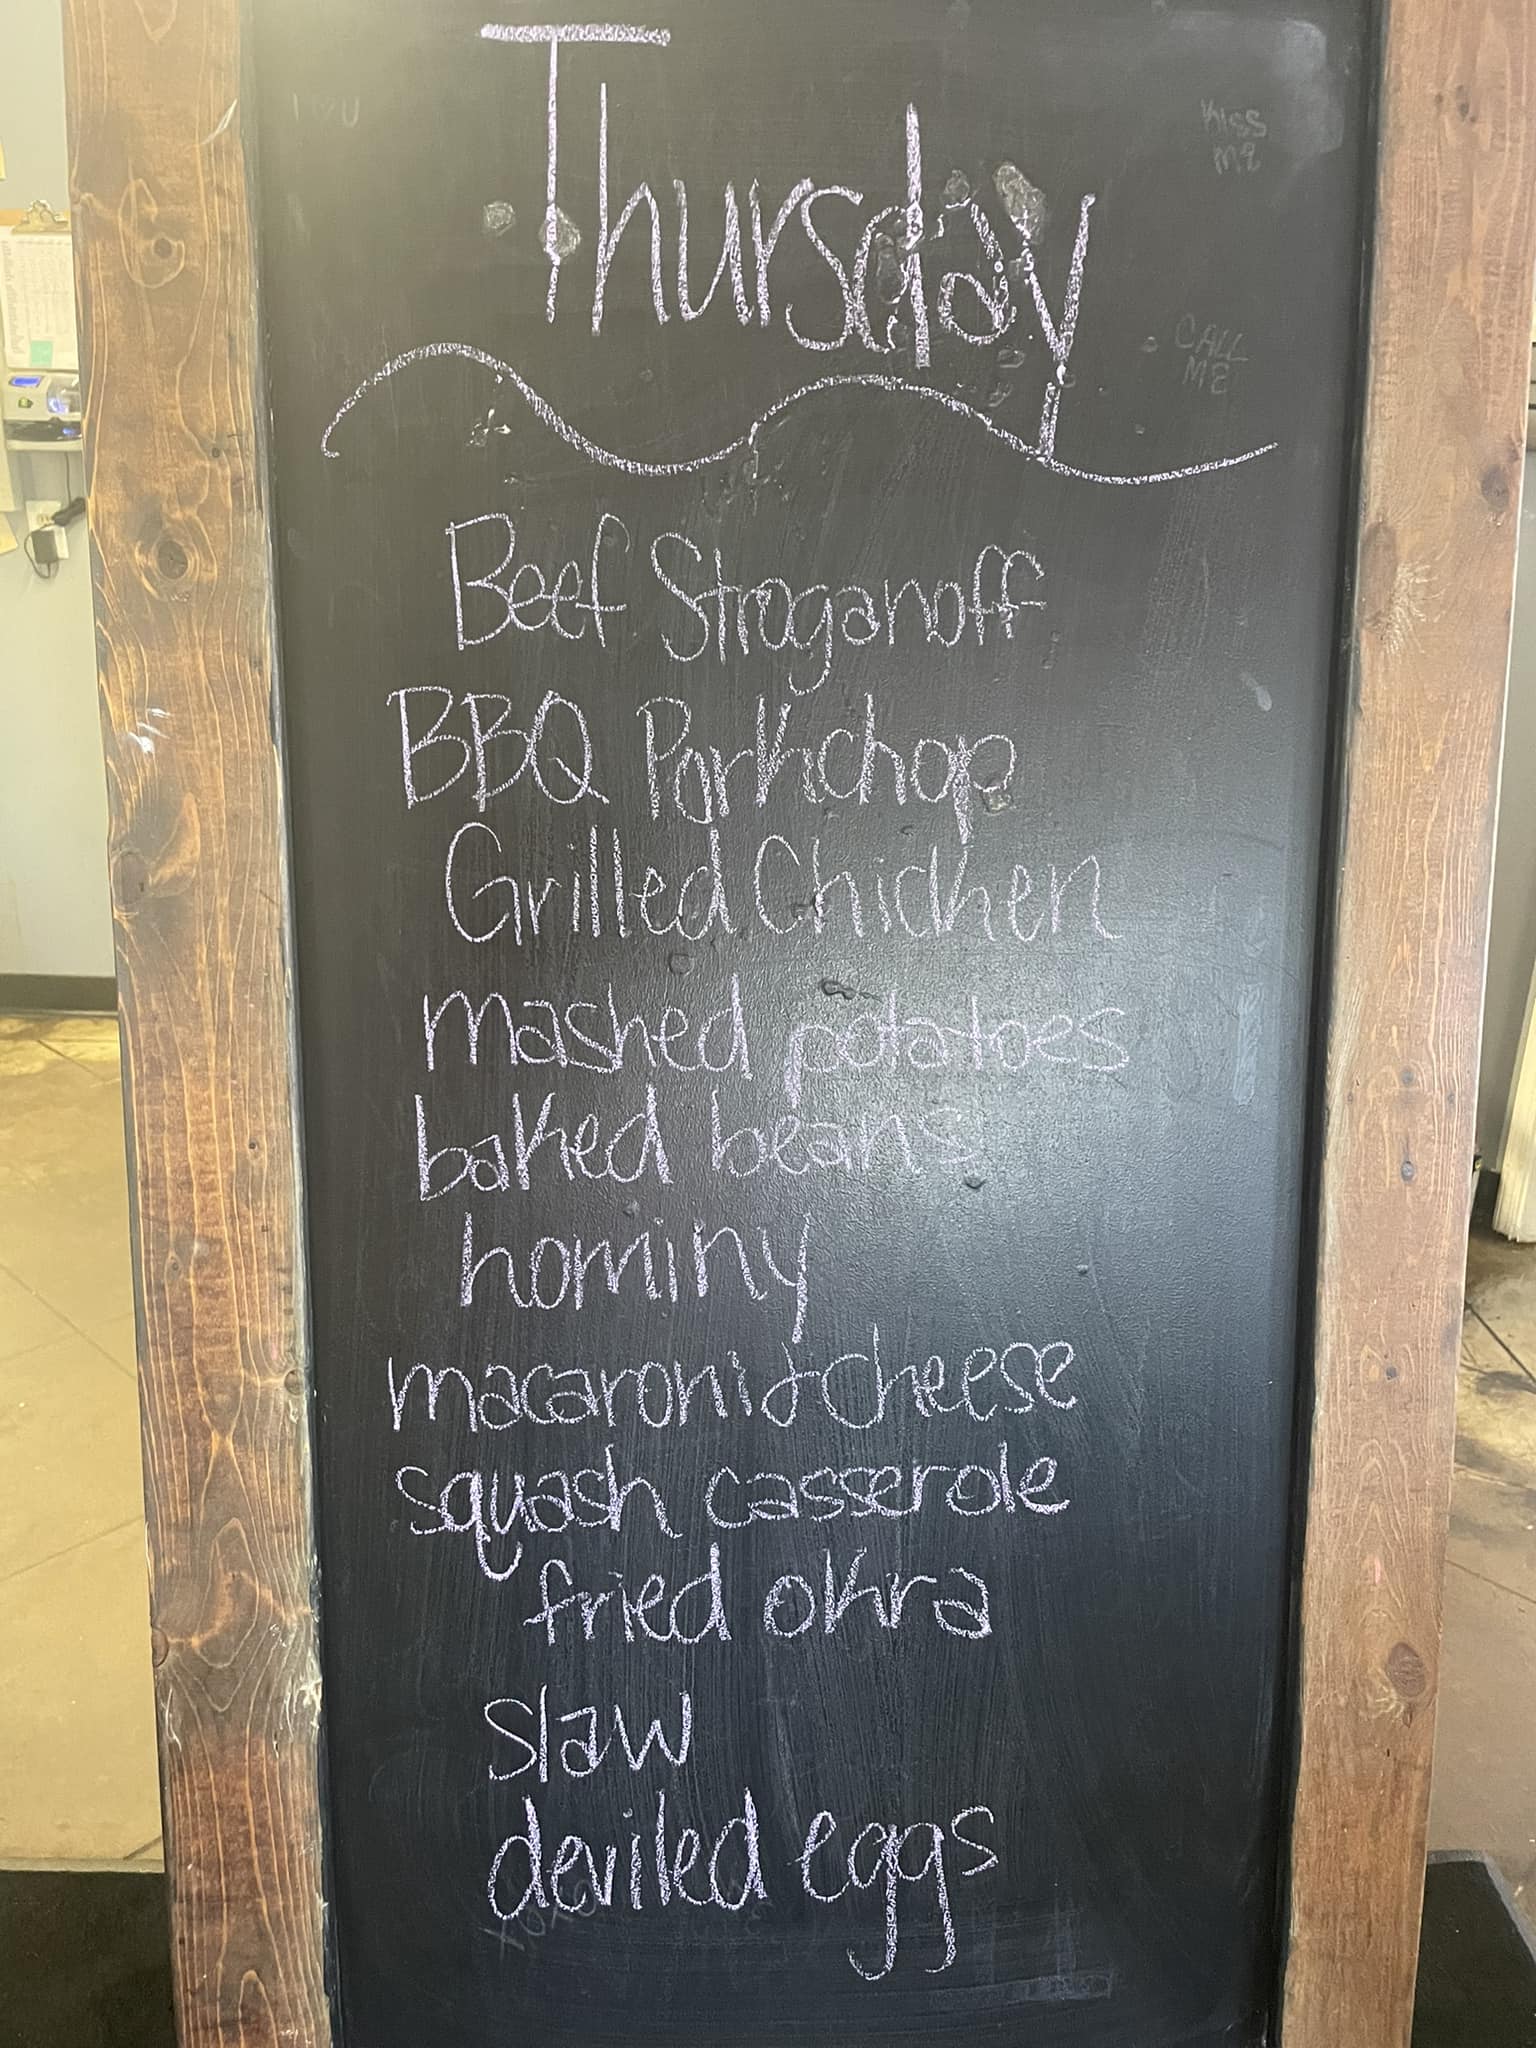 Thursday
I ♡ U
Kiss
ME
CALL
ME
Beef Stroganoff
BBQ Porkchop
Grilled Chicken
mashed potatoes
baked beans
hominy
macaroni & cheese
squash casserole
fried okra
slaw
deviled eggs
XOXO